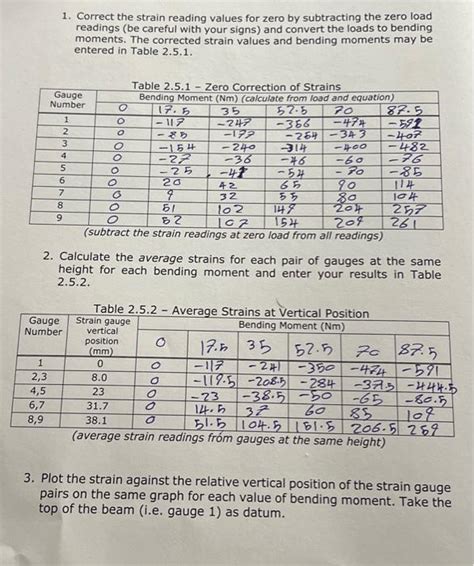 1. Correct the strain reading values for zero by subtracting the zero load
readings (be careful with your signs) and convert the loads to bending
moments. The corrected strain values and bending moments may be
entered in Table 2.5.1.
Table 2.5.1 – Zero Correction of Strains
Gauge Number Bending Moment (Nm) (calculate from load and equation)
0 17.5 35 52.5 70 87.5
1 0 -117 -247 -356 -474 -591
2 0 -85 -177 -254 -343 -407
3 0 -154 -240 -314 -400 -482
4 0 -27 -36 -46 -60 -76
5 0 -25 -41 -54 -70 -85
6 0 20 42 65 90 114
7 0 9 32 55 80 104
8 0 51 102 149 204 257
9 0 52 107 154 209 261
(subtract the strain readings at zero load from all readings)
2. Calculate the average strains for each pair of gauges at the same
height for each bending moment and enter your results in Table
2.5.2.
Table 2.5.2 – Average Strains at Vertical Position
Gauge Number Strain gauge vertical position (mm) Bending Moment (Nm)
0 17.5 35 52.5 70 87.5
1 0 0 -117 -241 -350 -474 -591
2,3 8.0 0 -119.5 -208.5 -284 -371.5 -444.5
4,5 23 0 -23 -38.5 -50 -65 -80.5
6,7 31.7 0 14.5 37 60 85 109
8,9 38.1 0 51.5 104.5 151.5 206.5 259
(average strain readings from gauges at the same height)
3. Plot the strain against the relative vertical position of the strain gauge
pairs on the same graph for each value of bending moment. Take the
top of the beam (i.e. gauge 1) as datum.